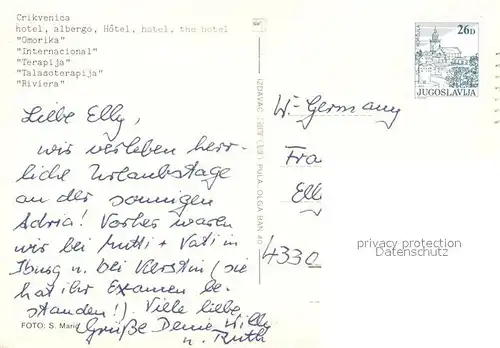 Crikvenica
hotel, albergo, Hôtel, hotel, the hotel
"Omorika"
"Internacional"
"Terapija"
"Talasoterapija"
"Riviera"
Liebe Elly,
wir verleben herr-
liche Urlaubstage
an der sonnigen
Adria! Vorher waren
wir bei Mutti + Vati in
Iburg u. bei Kerstin (sie
hat ihr Examen be-
standen!). Viele liebe
Grüße Deine Willy
u. Ruth
FOTO: S. Marić
PULA, OLGA BAN 40
26D
JUGOSLAVIJA
W-Germany
Fra
Ell
4330
privacy protection
Datenschutz